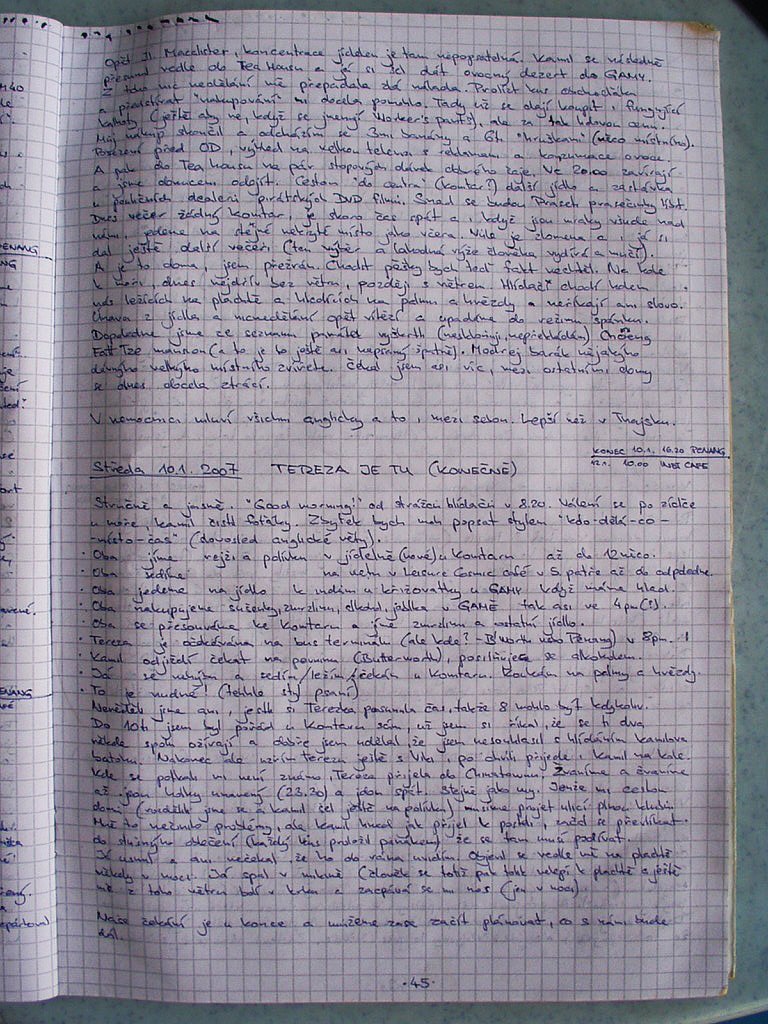 Opět Jl. Macalister, koncentrace jídelen je tam nepopsatelná. Kamil se následně
přesunul vedle do Tea Housu a já si šel dát ovocný dezert do GAMY.
Z toho nic nedělání mě přepadala zlá nálada. Prolézt kus obchoďáku
a předstírat "nakupování" mi docela pomohlo. Tady už se dají koupit i fungující
kalhoty (ještě aby ne, když se jmenují Worker's pants), ale za tak lidovou cenu.
Můj nákup skončil a odcházím se 3mi banány a 6ti "hruškami" (něco místního).
Posezení před OD, výhled na velkou telenu s reklamami a konzumace ovoce.
A pak do Tea housu na pár stopových dávek dobrého čaje. Ve 20.00 zavírají
a jsme donuceni odejít. Cestou "do centra" (Komtar?) další jídlo a zastávka
u pouličních dealerů pirátských DVD filmů. Snad se budou
Dnes večer žádný Komtar, je skoro čas spát a i když jsou mraky všude nad
námi, jedeme na stejné nekryté místo jako včera. Vůle je zlomena a i já si
dal ještě další večeři (ten výběr a lahodná výže člověka vydírá a mučí).
A je to doma, jsem přežrán. Chodit pěšky bych teď fakt nechtěl. Na kole
k moři, dnes nejdřív bez větru, později s větrem. Hlídači chodí kolem
nás ležících na plachtě a hledících na palmy a hvězdy a neříkají ani slovo.
Únava z jídla a nicnedělání opět vítězí a upadáme do režimu spánku.
Dopoledne jsme ze seznamu památek vyškrtli Choeng
Fatt Tze mansion (a to je to ještě asi napsaný špatně). Modrej barák nějakýho
dávnýho velkýho místního zvířete. Čekal jsem asi víc, mezi ostatními domy
se dnes docela ztrácí.
V nemocnici mluví všichni anglicky a to i mezi sebou. Lepší než v Thajsku.
KONEC 10.1. 16.20 PENANG
12.1. 10.00 INET CAFE
Středa 10.1. 2007 TEREZA JE TU (KONEČNĚ)
Stručně a jasně. "Good morning!" od strážců hlídačů v 8.20. Válení se po zídce
u moře, Kamil čistí foťáky. Zbytek bych mohl popsat stylem "kdo-dělá-co-
-místo-čas" (dovosled anglické věty).
· Oba jíme rejži a polívku v jídelně (nové) u Komtaru až do 12 něco.
· Oba sedíme na netu v Leisure Cosmic Café v 5. patře až do odpoledne.
· Oba jedeme na jídlo k indům u křižovatky u GAMY když máme hlad.
· Oba nakupujeme sušenky, zmrzlinu, alkohol, jablka v GAMĚ tak asi ve 4 pm(?).
· Oba se přesouváme ke Komtaru a jíme zmrzlinu a ostatní jídlo.
· Tereza je očekávána na bus terminálu (ale kde? - B'worth nebo Penang) v 8pm.
· Kamil odjíždí čekat na pevninu (Butterworth), posilňujeme se alkoholem.
· Já se nehnu a sedím/ležím/čekám u Komtaru. Koukám na palmy a hvězdy.
· To je nudné! (tenhle styl psaní)
Nevěděli jsme ani, jestli si Terezka posunula čas, takže 8 mohlo být kdykoliv.
Do 10ti jsem byl pořád u Komtaru sám, už jsem si říkal, že se ti dva
někde spolu ožírají a dobře jsem udělal, že jsem nesouhlasil s hlídáním Kamilova
batohu. Nakonec ale uzřím Terezu ještě s , po chvíli přijede i Kamil na kole.
Kde se potkali mi není známo, Tereza přijela do Chinatownu. Žvaníme a žvaníme
až jsou holky unavený (23.30) a jdou spát. Stejně jako my. Jenže mi cestou
domů (rozdělili jsme se a Kamil šel ještě na polívku) musíme projet ulicí plnou klubů.
Mně to nečinilo problémy, ale Kamil hned jak přijel k posteli, začal se převlíkat
do slušnýho oblečení (každý kus proložil panákem) že se tam musí podívat.
Já usnul a ani nečekal, že ho do rána uvidím. Objevil se vedle mě na plachtě
někdy v noci. Já spal v mikině (člověk se totiž pak tolik nelepí k plachtě a ještě
mě z toho větru bolí v krku a zacpává se mi nos (jen v noci)
Naše čekání je u konce a můžeme zase začít plánovat, co s námi bude
dál.
·45·